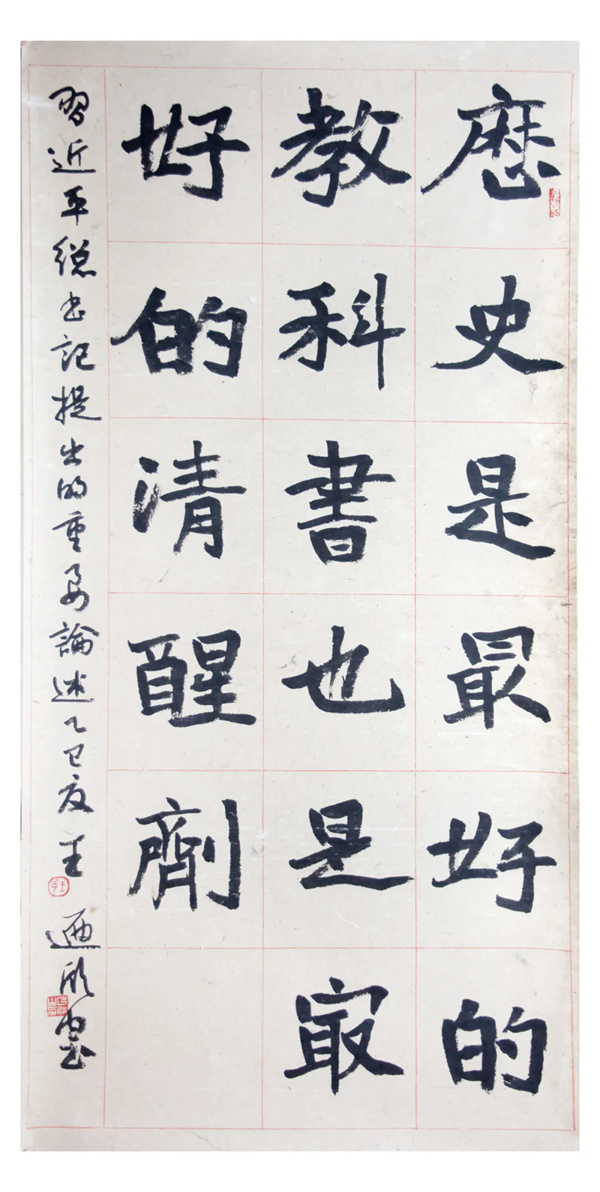 歷史是最好的
教科書也是最
好的清醒劑
習近平總書記提出的重要論述乙巳夏王迺欣書